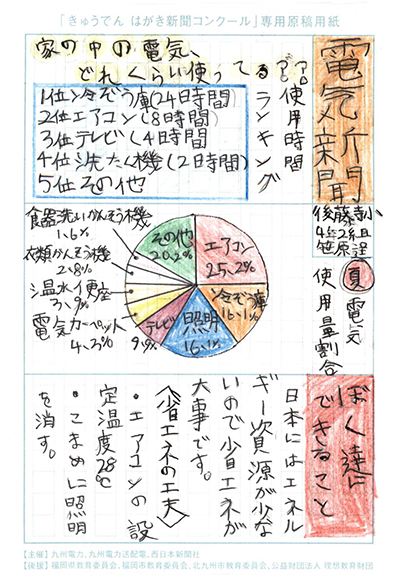 「きゅうでん はがき新聞コンクール」専用原稿用紙
電気新聞
後藤寺小
4年2組
笹原逞
家の中の電気、
どれくらい使ってる
使用時間
ランキング
1位冷ぞう庫(24時間)
2位エアコン(8時間)
3位テレビ(4時間
4位洗たく機(2時間)
5位その他
夏電気
使用量割合
エアコン
25,2%
冷ぞう庫
16,1%
照明
16,1%
テレビ
9,9%
電気カーペット
4,3%
温水便座
3,9%
衣類かんそう機
2,8%
食器洗いかんそう機
1,6%
その他
20,2%
ぼく達に
できること
日本にはエネル
ギー資源が少な
いので少省エネが
大事です。
〈省エネの工夫〉
・エアコンの設
定温度28℃
・こまめに照明
を消す。
【主催】九州電力、九州電力送配電、西日本新聞社
【後援】福岡県教育委員会、福岡市教育委員会、北九州市教育委員会、公益財団法人 理想教育財団